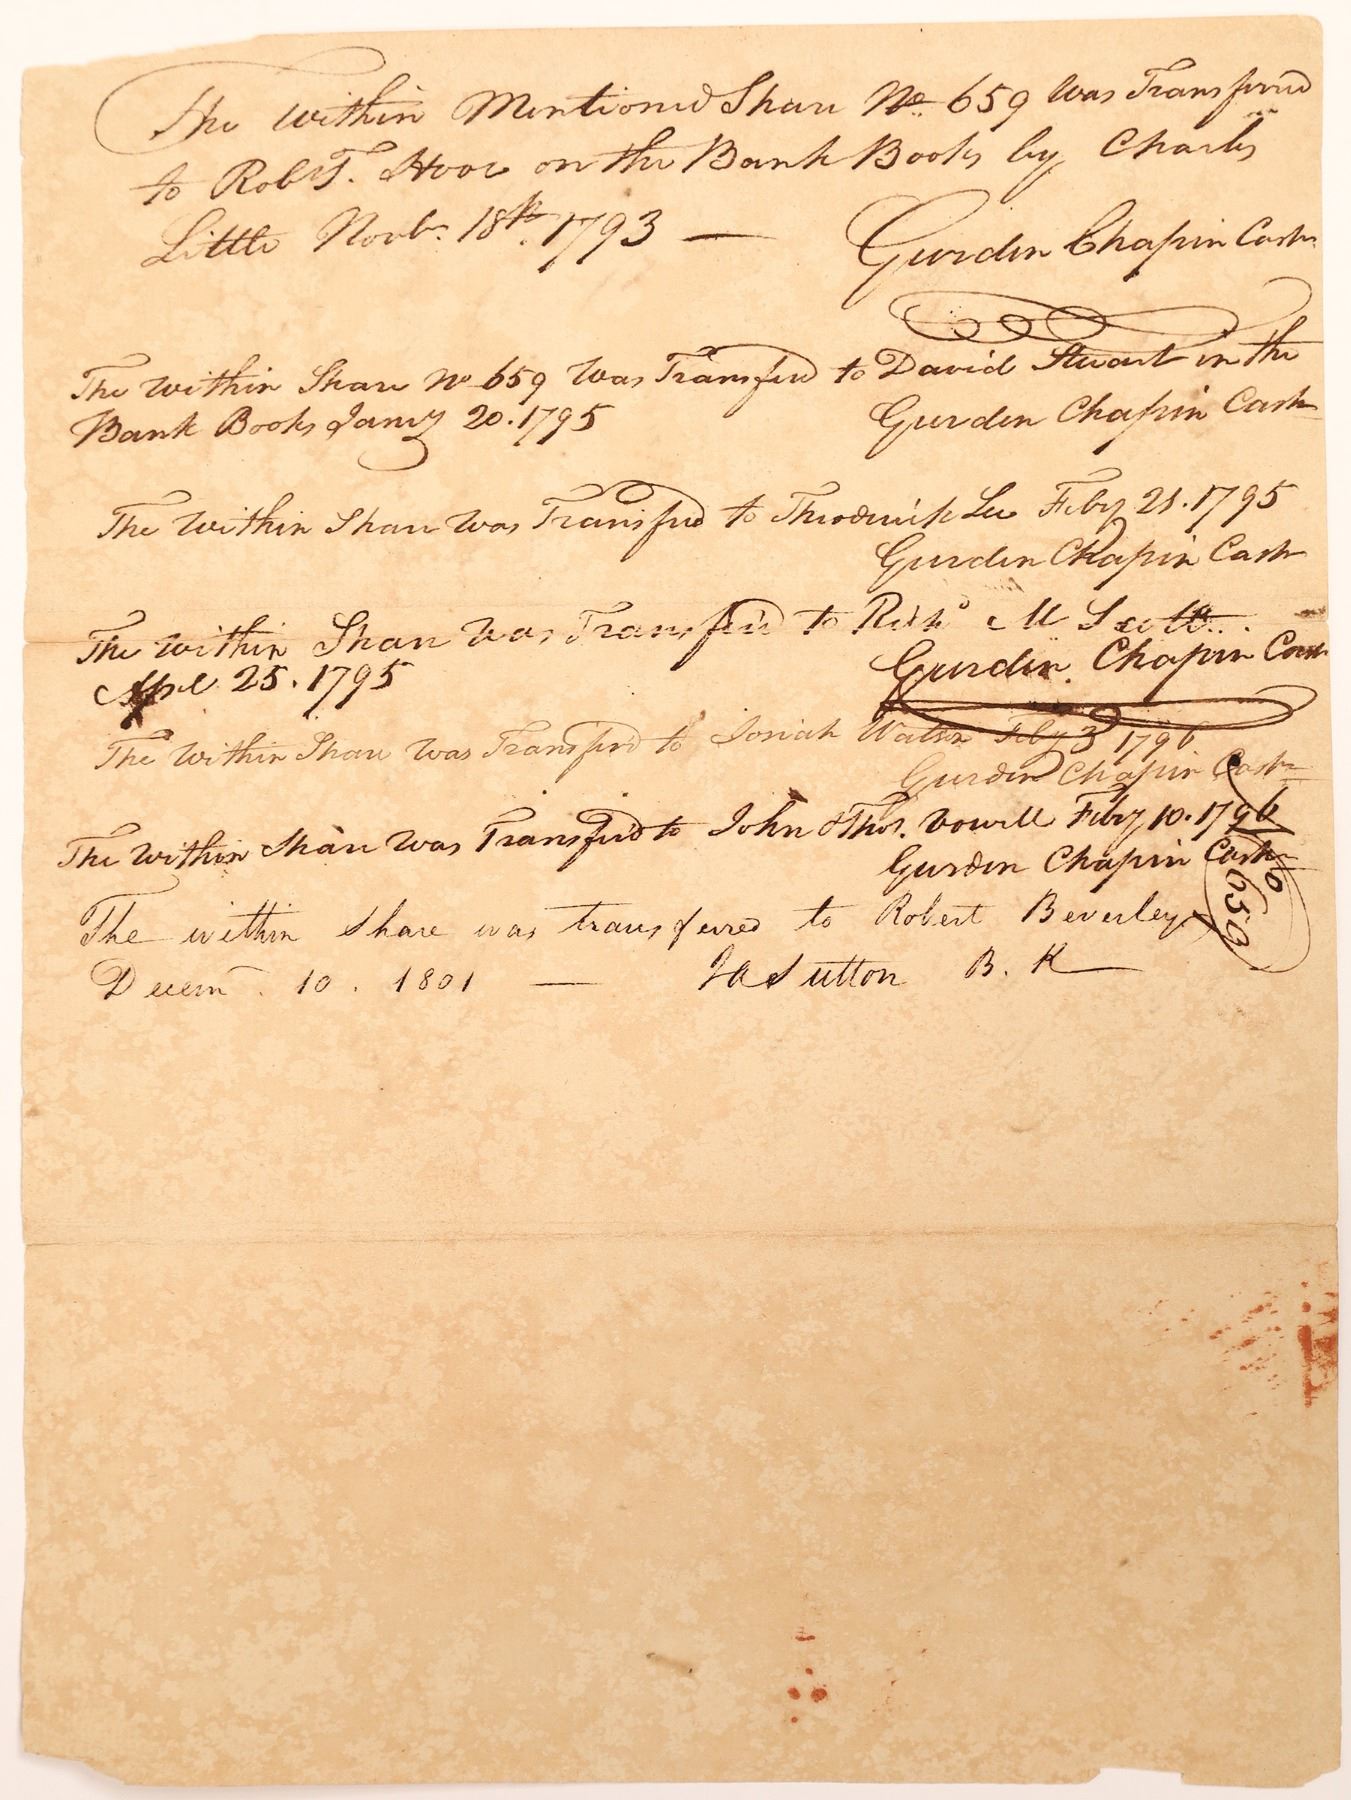 The within Mentioned Share No. 659 Was Transferrd
to Robt. T. Hooe on the Bank Books by Charles
Little Novbr. 18th. 1793 —
Gurden Chapin Cashr.
The within Share No 659 Was Transferd to David Stuart in the
Bank Books Jany 20. 1795
Gurden Chapin Cashr
The within Share was Transferd to Theoderick Lee Feby 21. 1795
Gurden Chapin Cashr
The within Share was Transferd to Richd M Scott.
Apel 25. 1795
Gurden Chapin Cash
The within Share was Transferd to Josiah Watson Feby 3 1796
Gurden Chapin Cashr
The within Share was Transferd to John & Thos. Vowell Feby 10. 1796
Gurden Chapin Cashr
No 659
The within share was transferred to Robert Beverley
Decemr. 10. 1801 — Sutton B. K